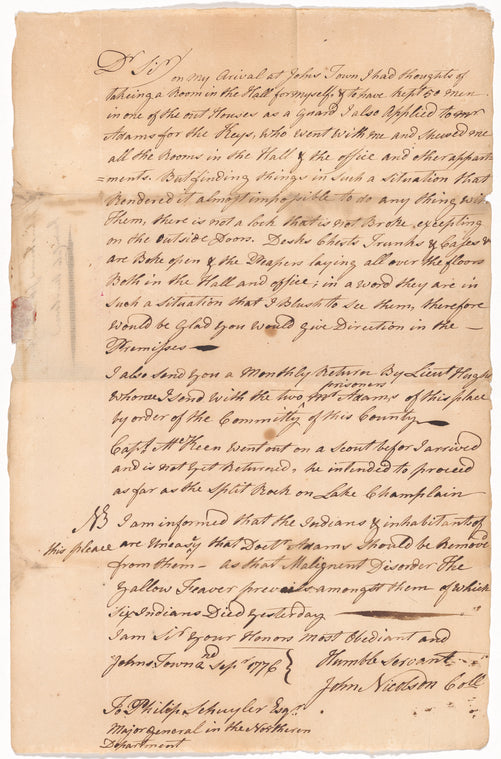 Dr Sir/ on my Arival at Johns Town I had thoughts of
takeing a Room in the Hall for myself & to have Kept 50 men
in one of the out Houses as a Guard I also Applied to mr
Adams for the Keys, who went with me and shewed me
all the Rooms in the Hall & the office and other appart
=ments. But finding things in such a situation that
Rendered it almost impossible to do any thing with
Them, there is not a lock that is not Broke excepting
on the outside Doors. Desks Chests Trunks & Cases &
are Boke open & the Papers laying all over the floors
Both in the Hall and office; in a word they are in
such a situation that I Blush to see them, therefore
would be Glad you would give Direction in the —
Premisses —
I also send you a Monthly Return By Lieut Hughs
whome I send with the two prisoners Mr Adams of this place
by order of the Committy of this County —
Capt McKeen went out on a Scout befor I arrived
and is not yet Returned, he intended to proceed
as far as the Split Rock on Lake Champlain
NB I am informed that the Indians & inhabitants of
this pleace are Uneasy that Doctr Adams should be Removd
from them — as that Malignent Disorder the
Yallow Feaver prevails amongst them of which
Six Indians Died yesterday —
I am Sir your Honors most Obediant and
Johns Town 2nd Sepr 1776 } Humble Servant
John Nicolson Coll
To Philip Schuyler Esqr
Major general in the Northeren
Department